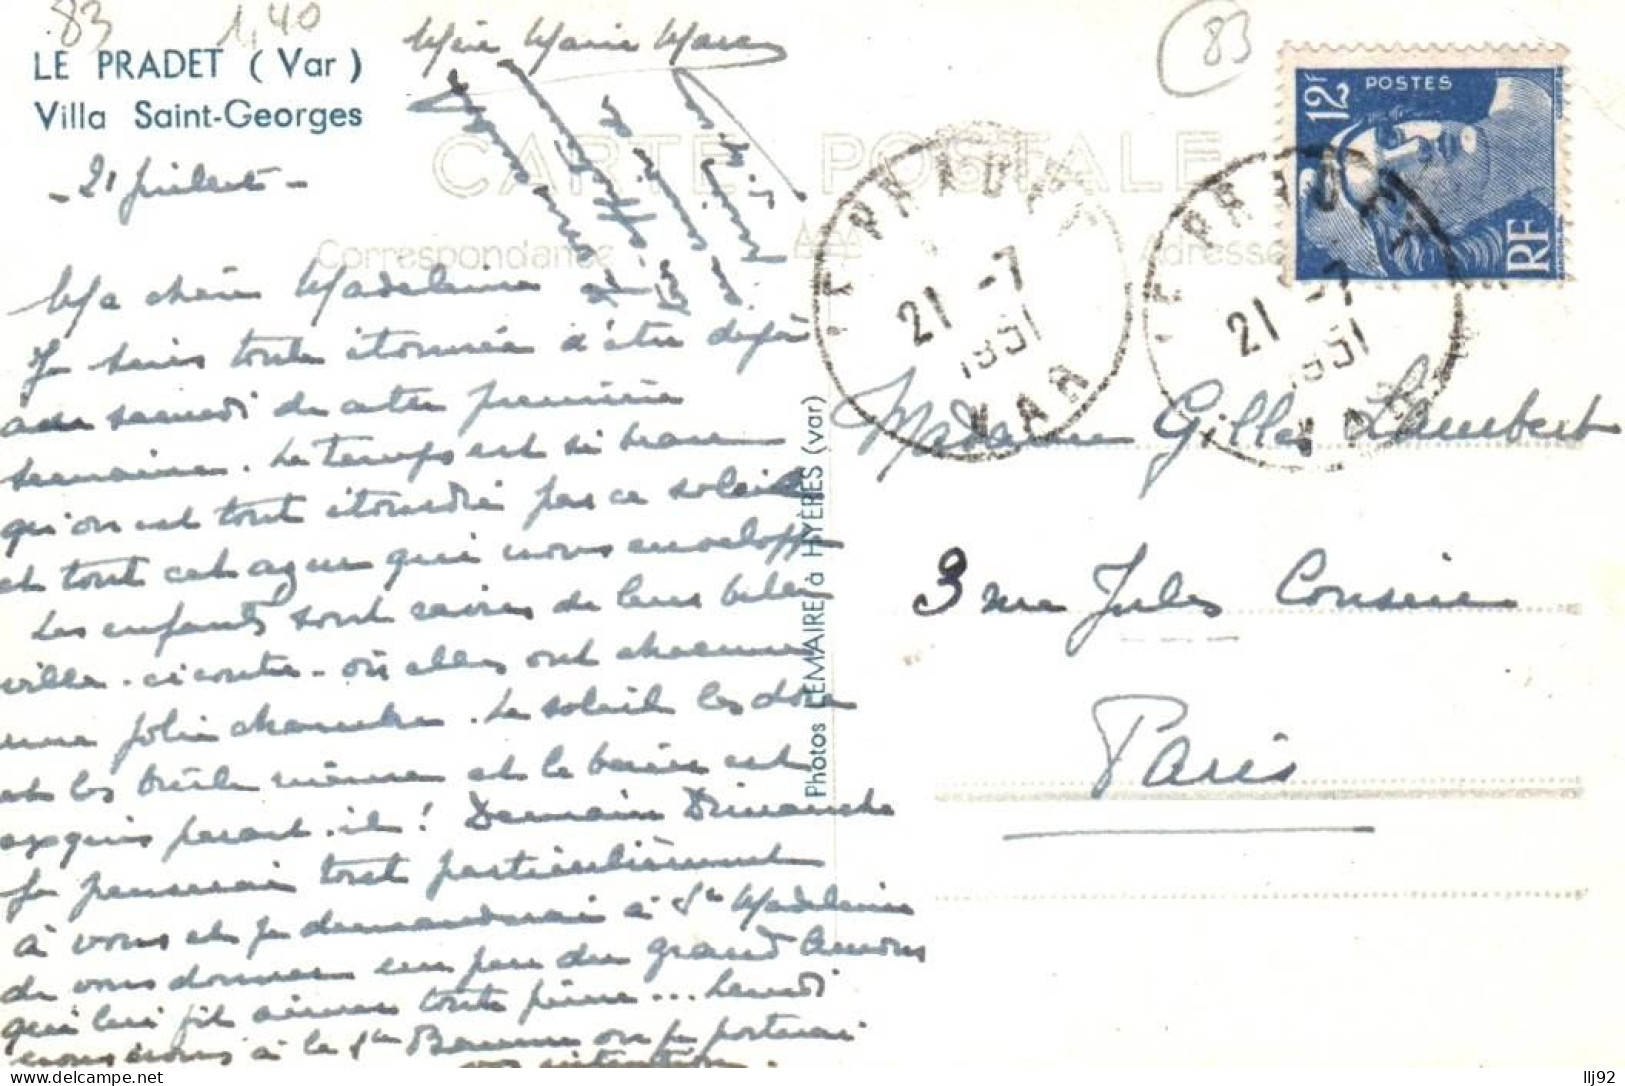 83 1,40
LE PRADET (Var)
Villa Saint-Georges
- 21 juillet -
Mère Marie Marc
83
POSTES
12F
RF
CARTE POSTALE
Correspondance
Adresse
LE PRADET
21 -7
1951
VAR
LE PRADET
21 -7
1951
VAR
Ma chère Madeleine
Je suis toute étonnée d'être déjà
au samedi de notre première
semaine. Le temps est si beau
qu'on est tout étourdi par ce soleil
et tout cet azur qui nous enveloppe
Les enfants sont ravies de leur belle
villa - ci contre - où elles ont chacune
une jolie chambre. Le soleil les dore
et les brûle même et le bain est
exquis paraît-il ! Demain Dimanche
Je penserai tout particulièrement
à vous et je demanderai à Ste Madeleine
de vous donner un peu du grand Amour
qui lui fit aimer toute peine... Lundi
nous irons à la Ste Baume où je porterai
vos intentions.
Photos LEMAIRE à HYÈRES (var)
Madame Gilles Lambert
3 rue Jules Cousin
Paris
llj92